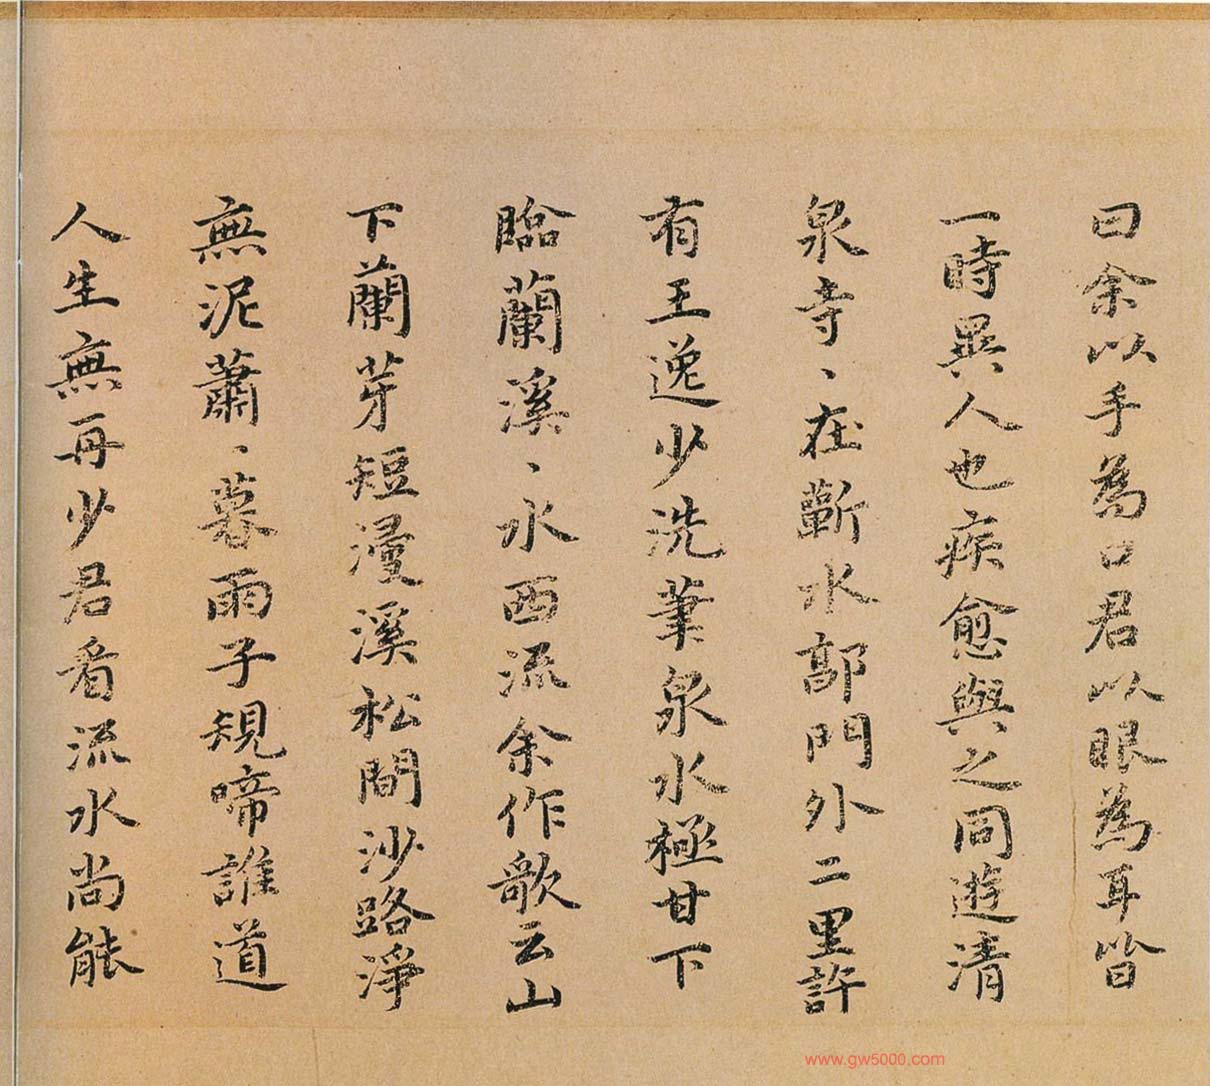 曰余以手為口君以眼為耳皆
一時異人也疾愈與之同遊清
泉寺、在蘄水郭門外二里許
有王逸少洗筆泉水極甘下
臨蘭溪、水西流余作歌云山
下蘭芽短浸溪松間沙路淨
無泥蕭、暮雨子規啼誰道
人生無再少君看流水尚能
www.gw5000.com